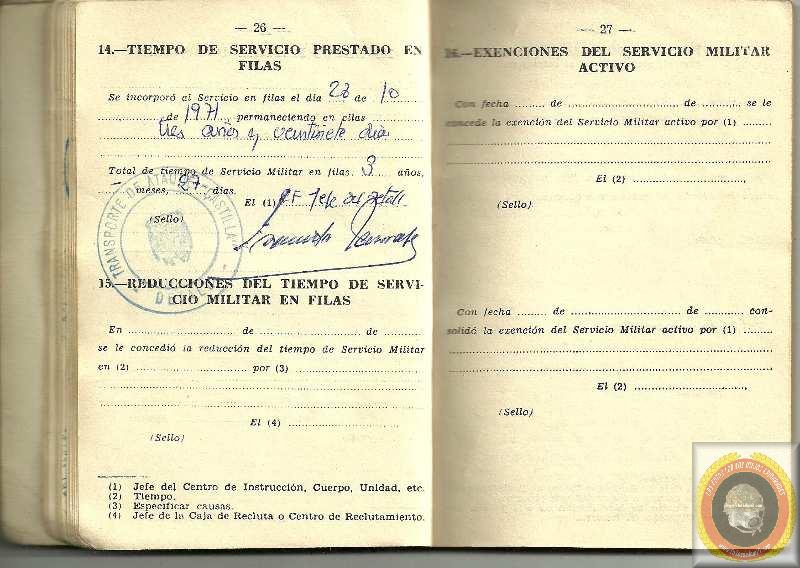 — 26 —
14.—TIEMPO DE SERVICIO PRESTADO EN
FILAS
Se incorporó al Servicio en filas el día 28 de 10
de 1971 permaneciendo en filas
tres años y veintisiete dias
Total de tiempo de Servicio Militar en filas 3 años,
— meses, 27 días.
El (1) Jefe del Detall
(Sello)
TRANSPORTE DE ATAQUE CASTILLA
15.—REDUCCIONES DEL TIEMPO DE SERVI-
CIO MILITAR EN FILAS
En ........ de ........ de ........
se le concedió la reducción del tiempo de Servicio Militar
en (2) ........ por (3) ........
El (4) ........
(Sello)
(1) Jefe del Centro de Instrucción, Cuerpo, Unidad, etc.
(2) Tiempo.
(3) Especificar causas.
(4) Jefe de la Caja de Recluta o Centro de Reclutamiento.
— 27 —
16.—EXENCIONES DEL SERVICIO MILITAR
ACTIVO
Con fecha ........ de ........ de ........ se le
concede la exención del Servicio Militar activo por (1) ........
El (2) ........,
(Sello)
Con fecha ........ de ........ de ........ con-
solidó la exención del Servicio Militar activo por (1) ........
El (2) ........,
(Sello)